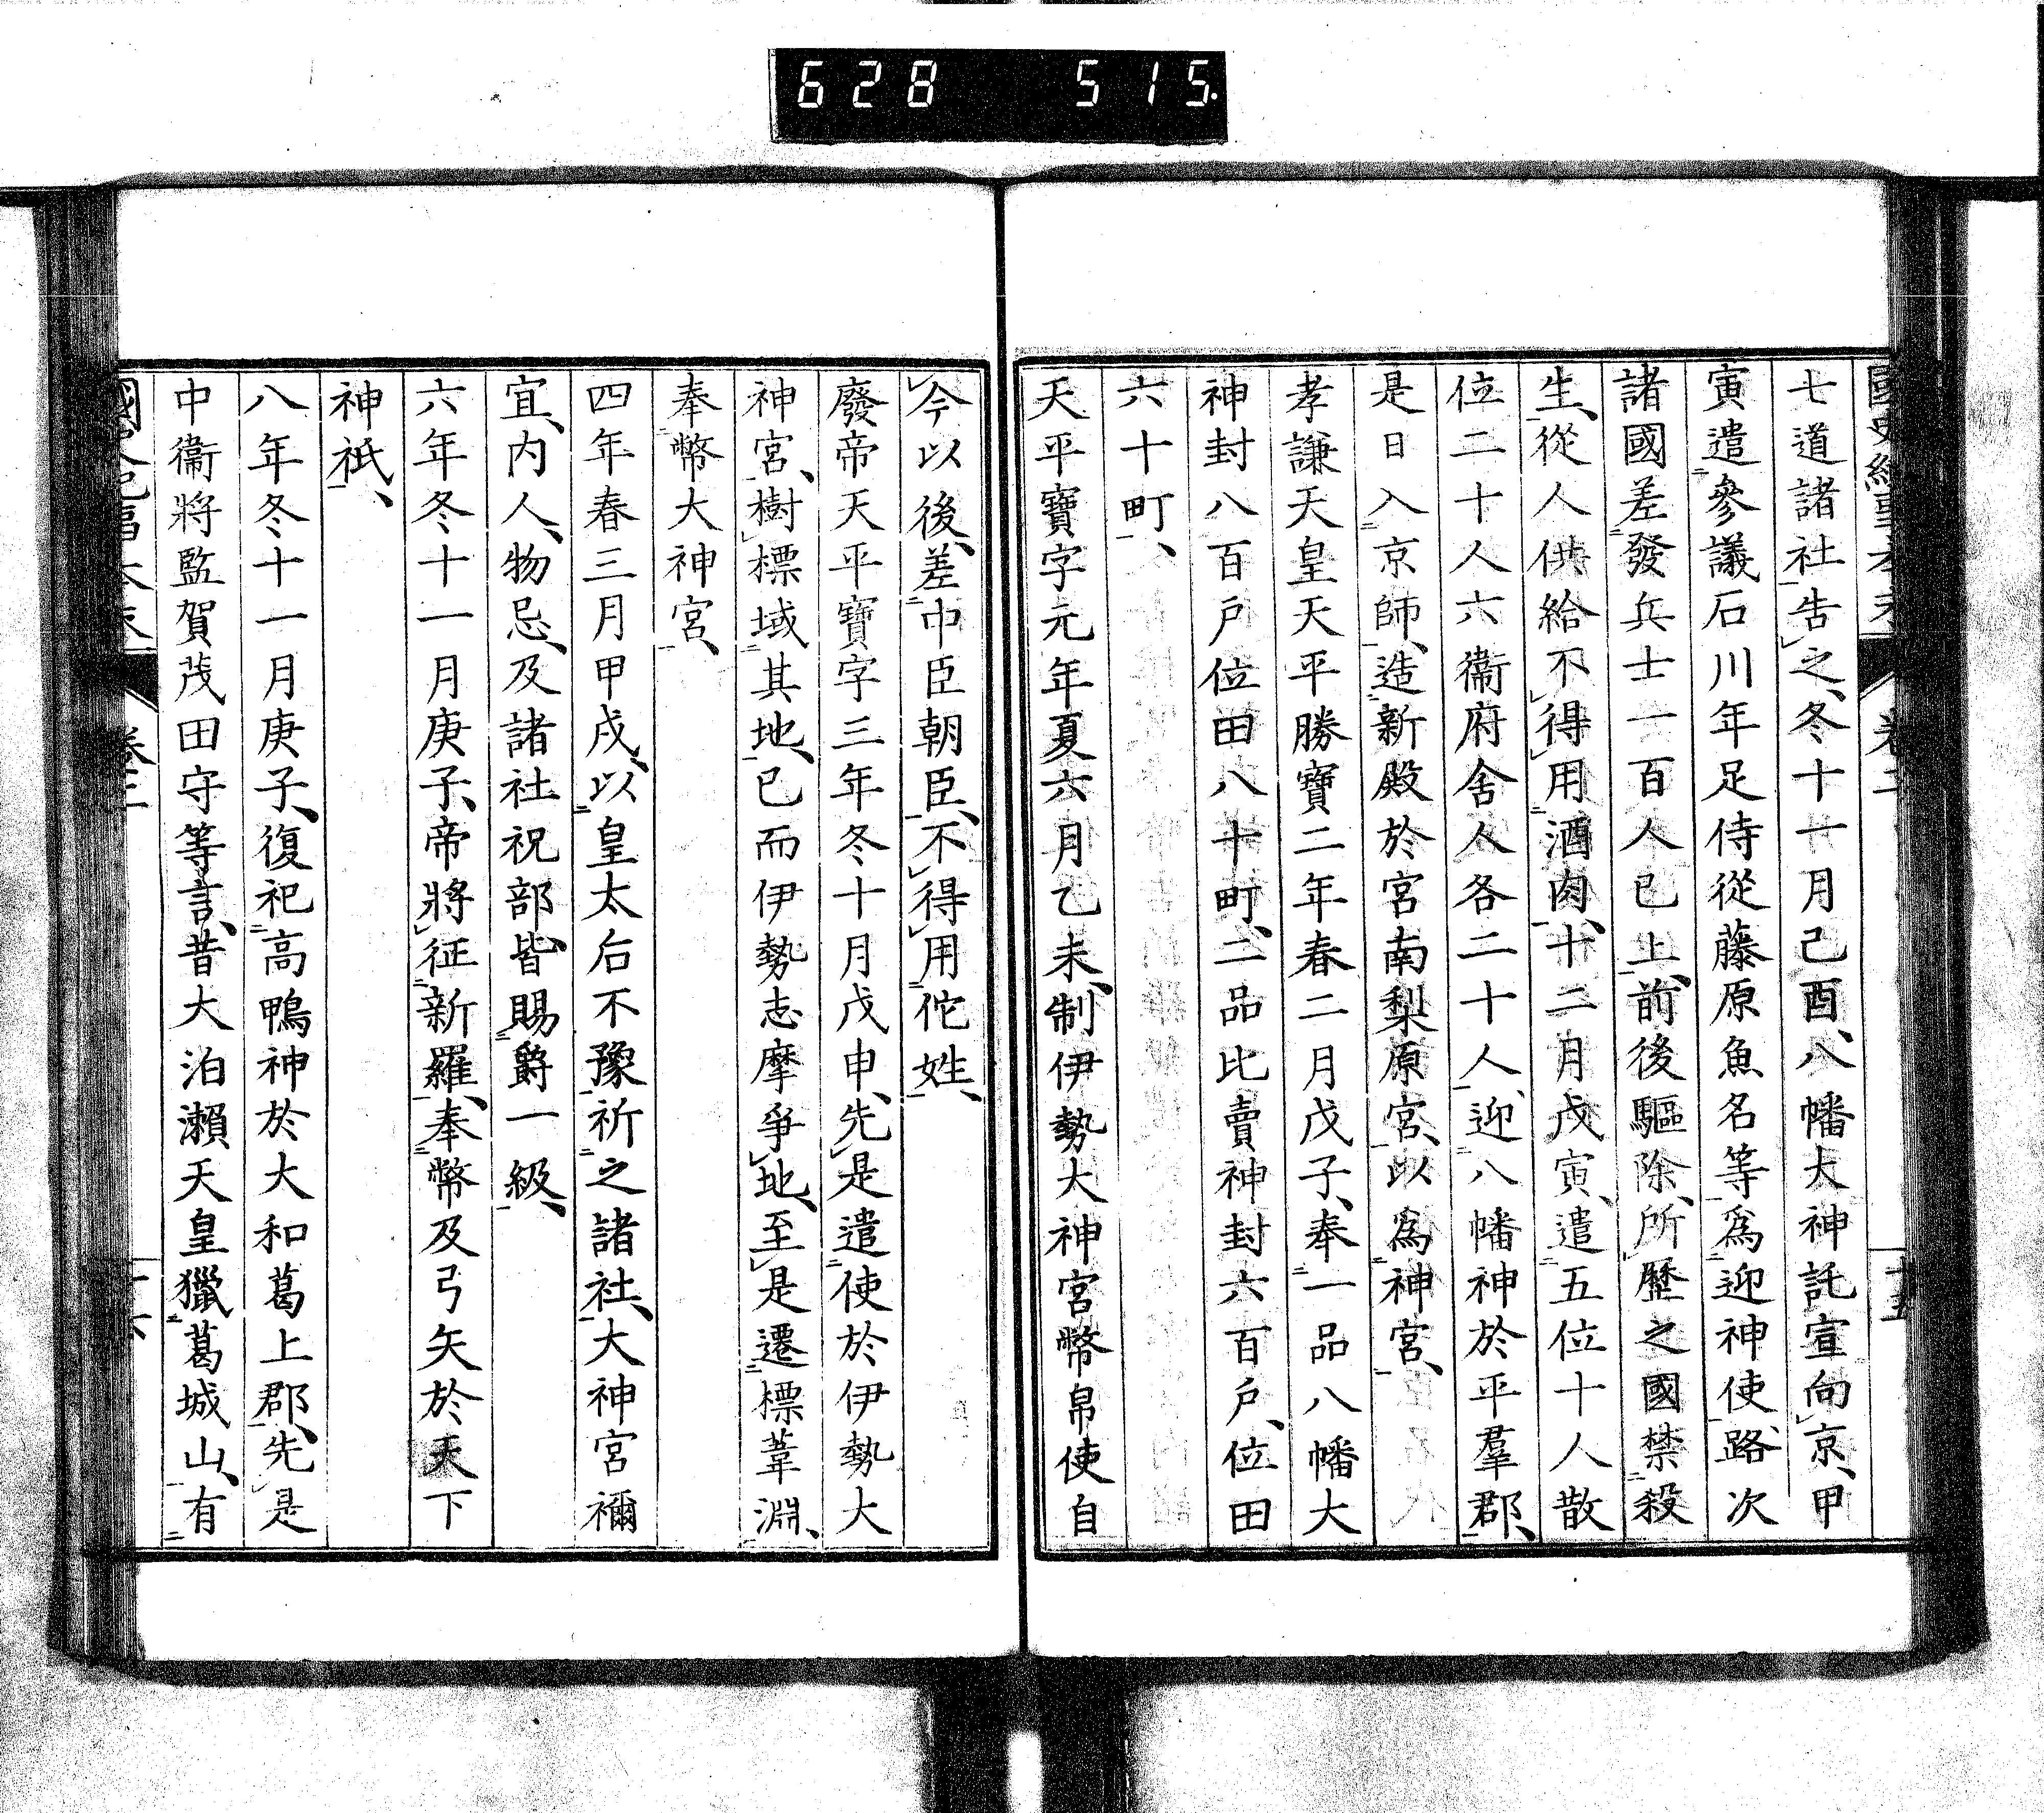 628 515.
七道諸社告之、冬十一月己酉、八幡大神託宣向京、甲
寅遣參議石川年足侍從藤原魚名等爲迎神使、路次
諸國差發兵士一百人已上、前後驅除、所歷之國禁殺
生、從人供給不得用酒肉、十二月戊寅、遣五位十人散
位二十人六衞府舍人各二十人、迎八幡神於平羣郡、
是日入京師、造新殿於宮南梨原宮、以爲神宮、
孝謙天皇天平勝寶二年春二月戊子、奉一品八幡大
神封八百戶位田八十町、二品比賣神封六百戶、位田
六十町、
天平寶字元年夏六月乙未、制伊勢大神宮幣帛使自
今以後、差中臣朝臣、不得用佗姓、
廢帝天平寶字三年冬十月戊申、先是遣使於伊勢大
神宮、樹標域其地、已而伊勢志摩爭地、至是遷標葦淵、
奉幣大神宮、
四年春三月甲戌、以皇太后不豫祈之諸社、大神宮禰
宜、內人、物忌、及諸社祝部、皆賜爵一級、
六年冬十一月庚子、帝將征新羅、奉幣及弓矢於天下
神祇、
八年冬十一月庚子、復祀高鴨神於大和葛上郡、先是
中衞將監賀茂田守等言、昔大泊瀨天皇獵葛城山、有